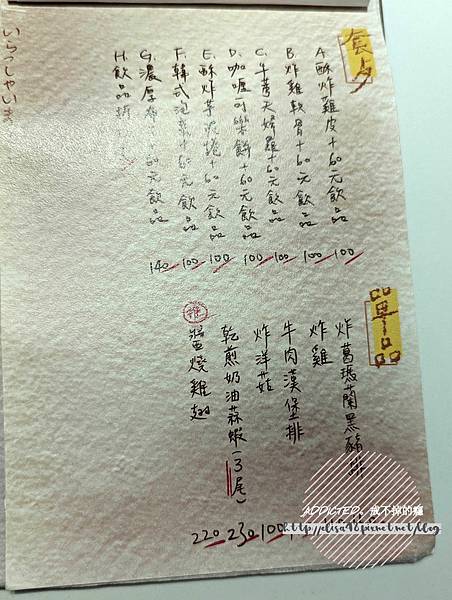 套夕
A.酥炸雞皮+60元飲品 100
B.炸雞軟骨+60元飲品 100
C.牛蒡天婦羅+60元飲品 100
D.咖喱可樂餅+60元飲品 100
E.酥炸芋泥捲+60元飲品 100
F.韓式泡菜+60元飲品 100
G.濃厚 +60元飲品 140
H.飲品折
いらっしゃいませ
單品
炸葛瑪蘭黑豬排
炸雞
牛肉漢堡排
炸洋菇 100
乾煎奶油蒜蝦(3尾) 230
推 醬燒雞翅 220
ADDICTED、戒不掉的癮
http://elisa98.pixnet.net/blog